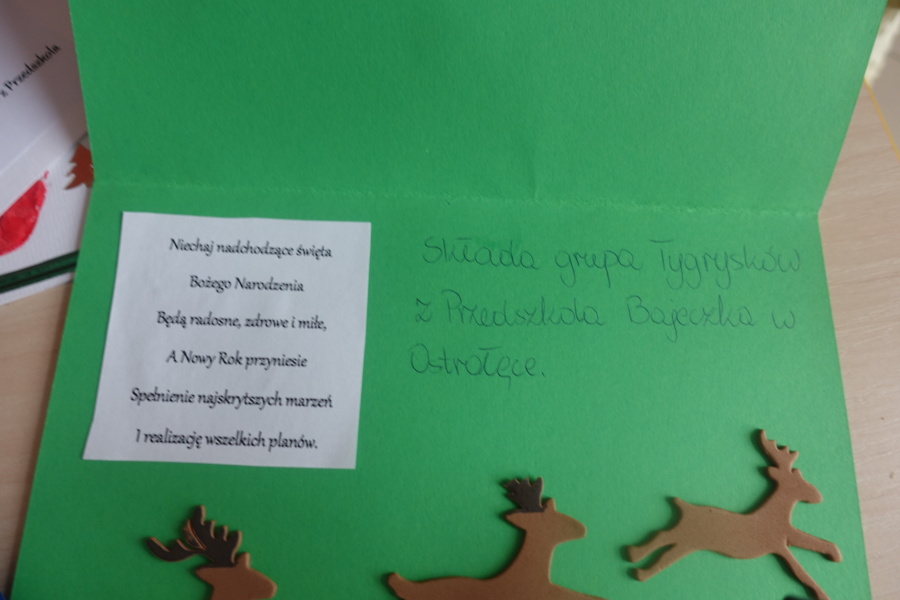 z Przedszkola
Niechaj nadchodzące święta
Bożego Narodzenia
Będą radosne, zdrowe i miłe,
A Nowy Rok przyniesie
Spełnienie najskrytszych marzeń
I realizację wszelkich planów.
Składa grupa Tygrysków
z Przedszkola Bajeczka w
Ostrołęce.